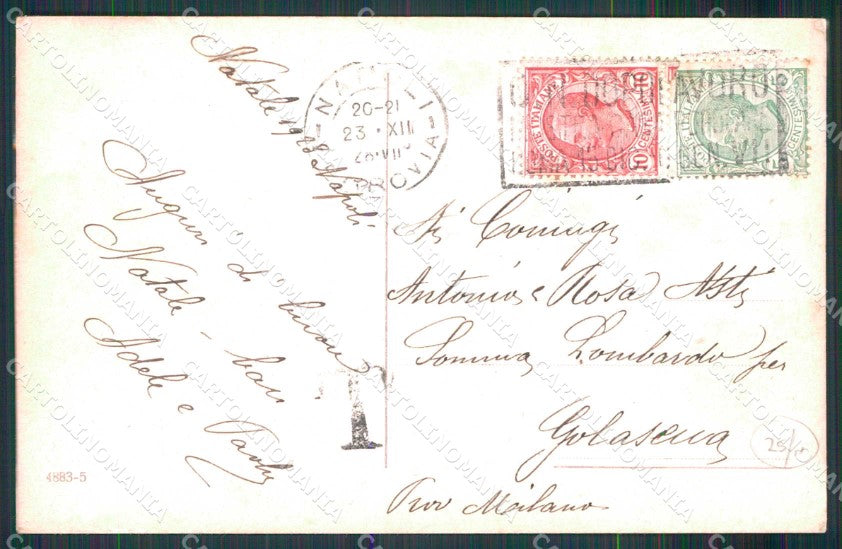 Natale 1923 Napoli
Auguri di buon
Natale - baci
Adele e Paolo
NAPOLI
20-21
23 XII
FERROVIA
POSTE ITALIANE
CENTESIMI 10
T
Ai Coniugi
Antonio e Rosa Asti
Somma Lombardo per
Golasecca
Prov Milano
4883-5
25/-
CARTOLINOMANIA